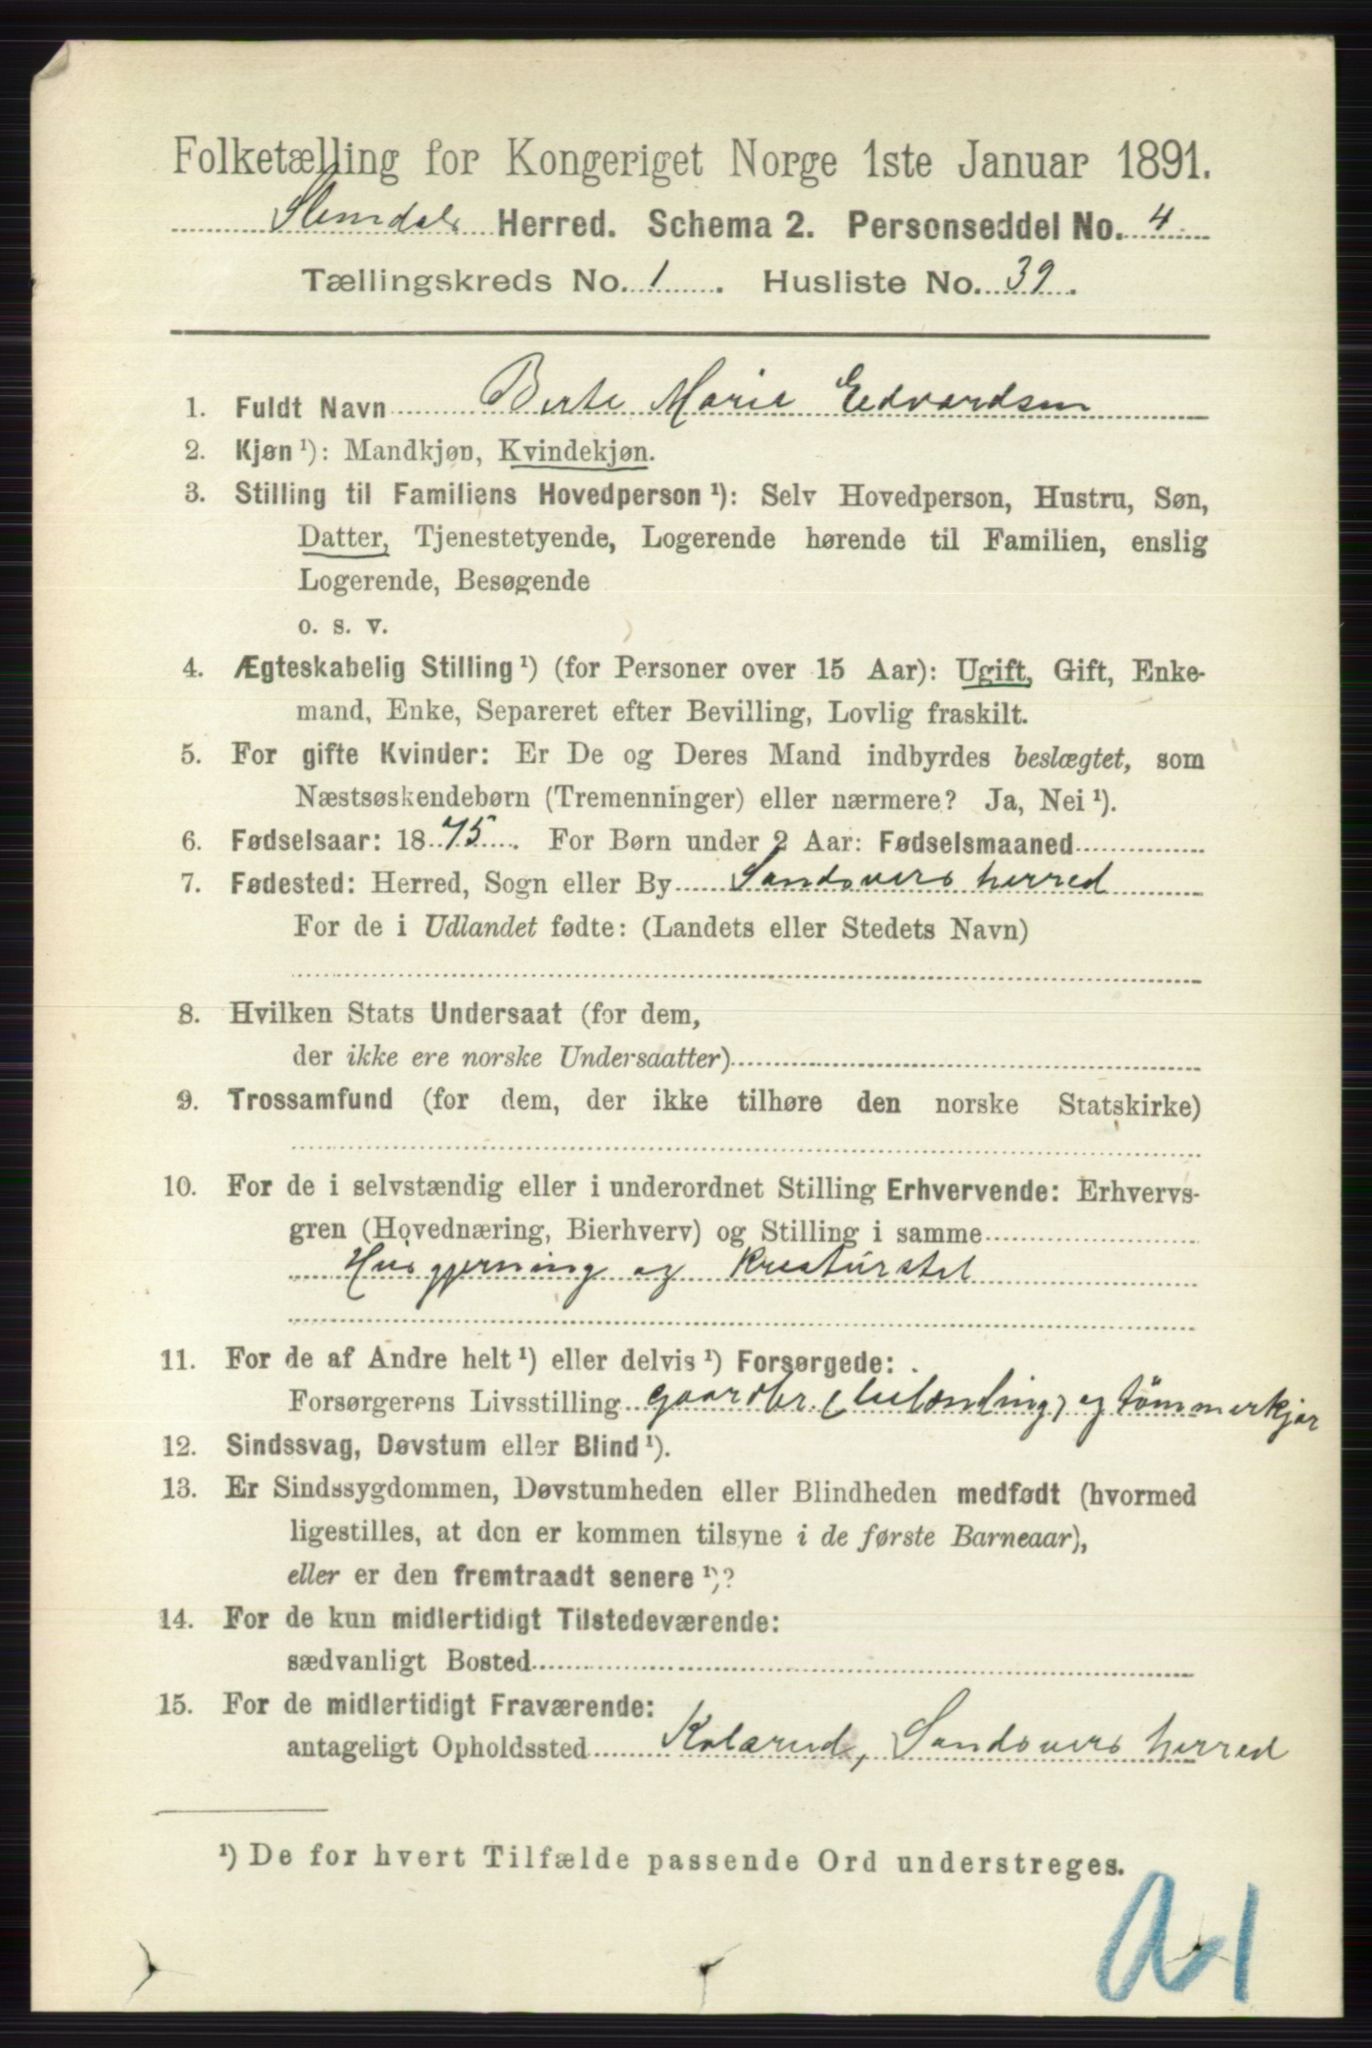 Folketælling for Kongeriget Norge 1ste Januar 1891.
Slemdals Herred. Schema 2. Personseddel No. 4
Tællingskreds No. 1. Husliste No. 39.
1. Fuldt Navn Berte Marie Edvardsen
2. Kjøn ¹): Mandkjøn, Kvindekjøn.
3. Stilling til Familiens Hovedperson ¹): Selv Hovedperson, Hustru, Søn,
Datter, Tjenestetyende, Logerende hørende til Familien, enslig
Logerende, Besøgende
o. s. v.
4. Ægteskabelig Stilling ¹) (for Personer over 15 Aar): Ugift, Gift, Enke-
mand, Enke, Separeret efter Bevilling, Lovlig fraskilt.
5. For gifte Kvinder: Er De og Deres Mand indbyrdes beslægtet, som
Næstsøskendebørn (Tremenninger) eller nærmere? Ja, Nei ¹).
6. Fødselsaar: 1875. For Børn under 2 Aar: Fødselsmaaned
7. Fødested: Herred, Sogn eller By Sandsvers herred
For de i Udlandet fødte: (Landets eller Stedets Navn)
8. Hvilken Stats Undersaat (for dem,
der ikke ere norske Undersaatter)
9. Trossamfund (for dem, der ikke tilhøre den norske Statskirke)
10. For de i selvstændig eller i underordnet Stilling Erhvervende: Erhvervs-
gren (Hovednæring, Bierhverv) og Stilling i samme
Husgjerning og Kreaturstel
11. For de af Andre helt ¹) eller delvis ¹) Forsørgede:
Forsørgerens Livsstilling gaardbr. (leilænding) og tömmerkjør
12. Sindssvag, Døvstum eller Blind ¹).
13. Er Sindssygdommen, Døvstumheden eller Blindheden medfødt (hvormed
ligestilles, at den er kommen tilsyne i de første Barneaar),
eller er den fremtraadt senere ¹)?
14. For de kun midlertidigt Tilstedeværende:
sædvanligt Bosted
15. For de midlertidigt Fraværende:
antageligt Opholdssted Kolarud, Sandsvers herred
¹) De for hvert Tilfælde passende Ord understreges.